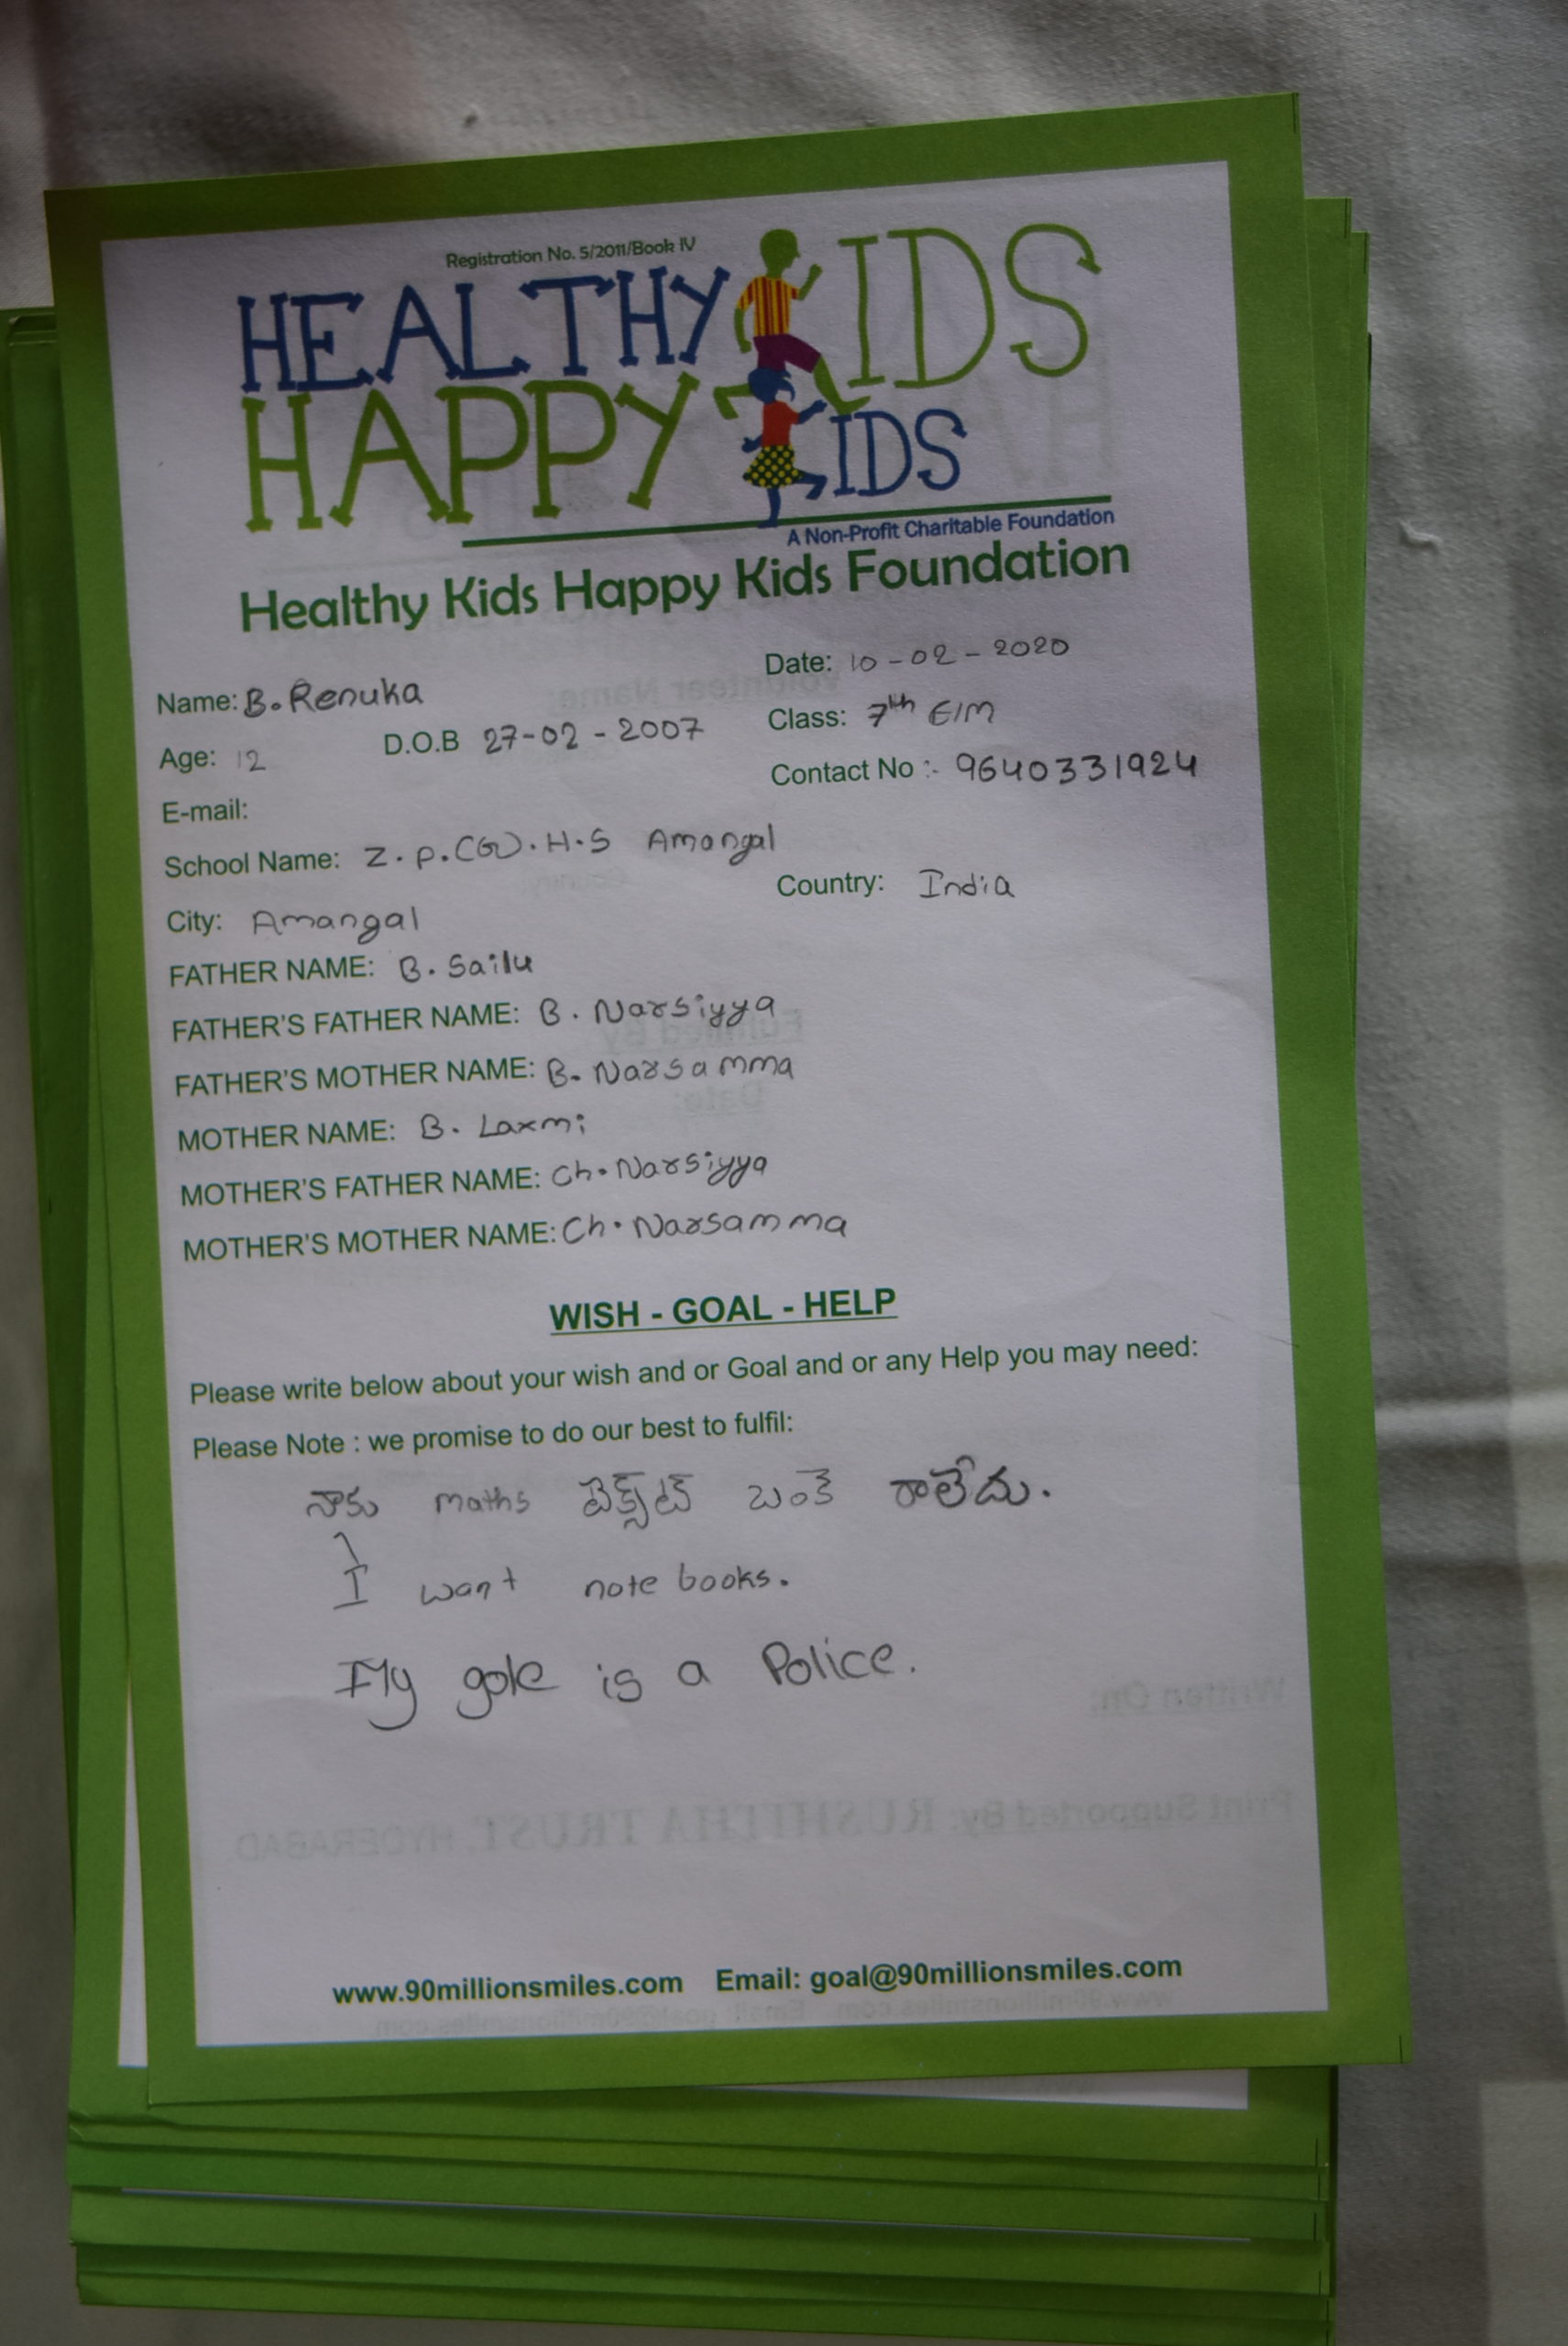 Registration No. 5/2011/Book IV
HEALTHY KIDS
HAPPY KIDS
A Non-Profit Charitable Foundation
Healthy Kids Happy Kids Foundation
Date: 10-02-2020
Name: B. Renuka
Class: 7th E/M
Age: 12 D.O.B 27-02-2007
Contact No :- 9640331924
E-mail:
School Name: Z.P.(G).H.S Amangal
Country: India
City: Amangal
FATHER NAME: B. Sailu
FATHER'S FATHER NAME: B. Narsiyya
FATHER'S MOTHER NAME: B. Narsamma
MOTHER NAME: B. Laxmi
MOTHER'S FATHER NAME: Ch. Narsiyya
MOTHER'S MOTHER NAME: Ch. Narsamma
WISH - GOAL - HELP
Please write below about your wish and or Goal and or any Help you may need:
Please Note : we promise to do our best to fulfil:
నాకు maths టెక్స్ట్ బుంకె రాలేదు.
I want note books.
My gole is a Police.
www.90millionsmiles.com Email: goal@90millionsmiles.com